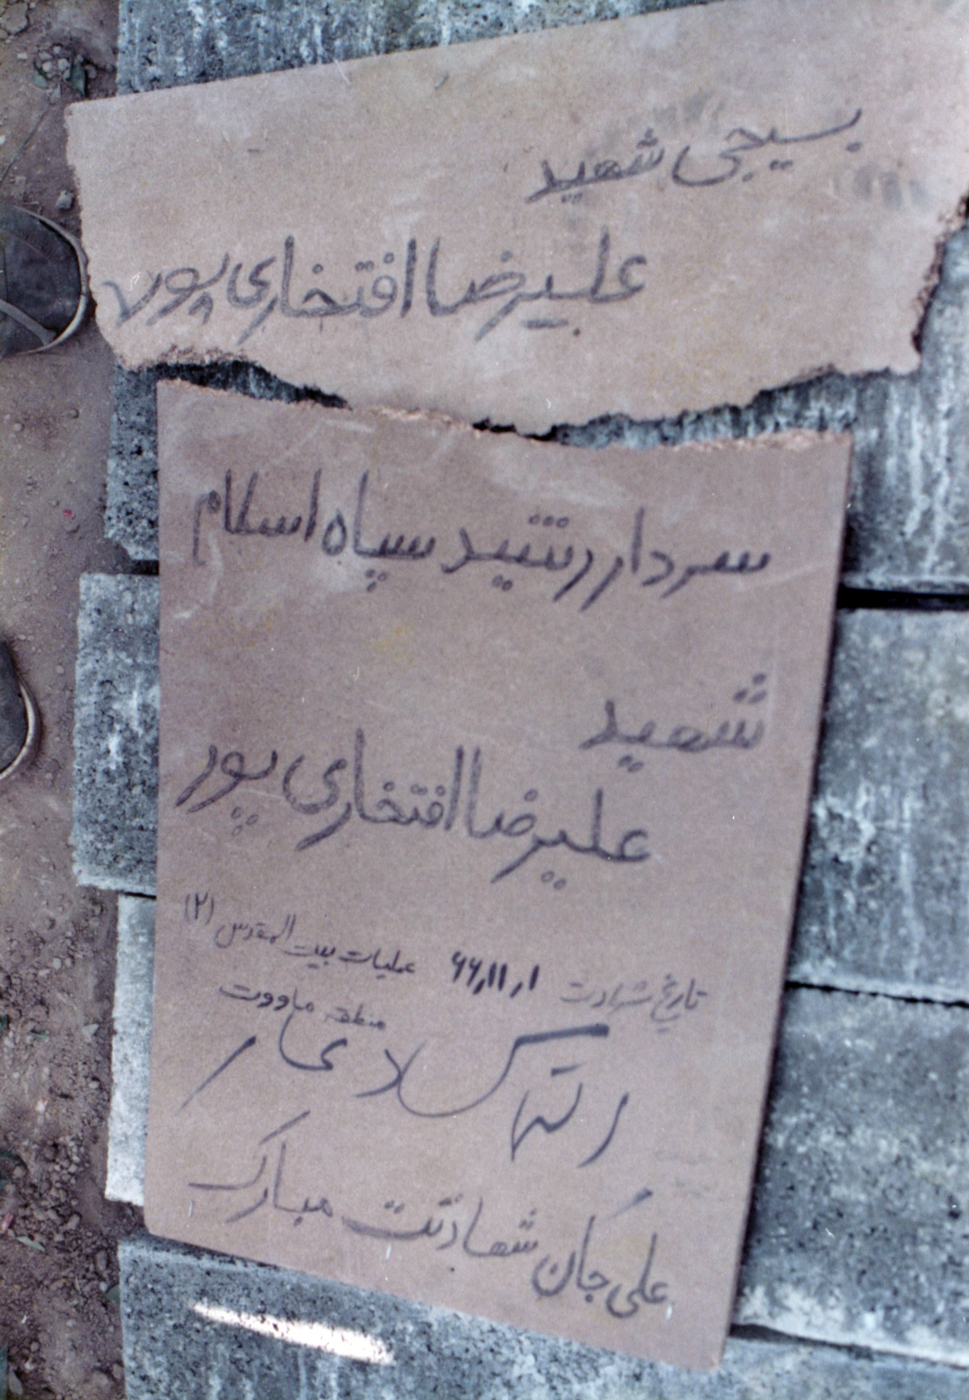 بسیجی شهید
علیرضا افتخاری پور
سردار رشید سپاه اسلام
شهید
علیرضا افتخاری پور
تاریخ شهادت ۶۶٫۱۱٫۱ عملیات بیت المقدس (۲)
منطقه ماووت
علی جان شهادتت مبارک